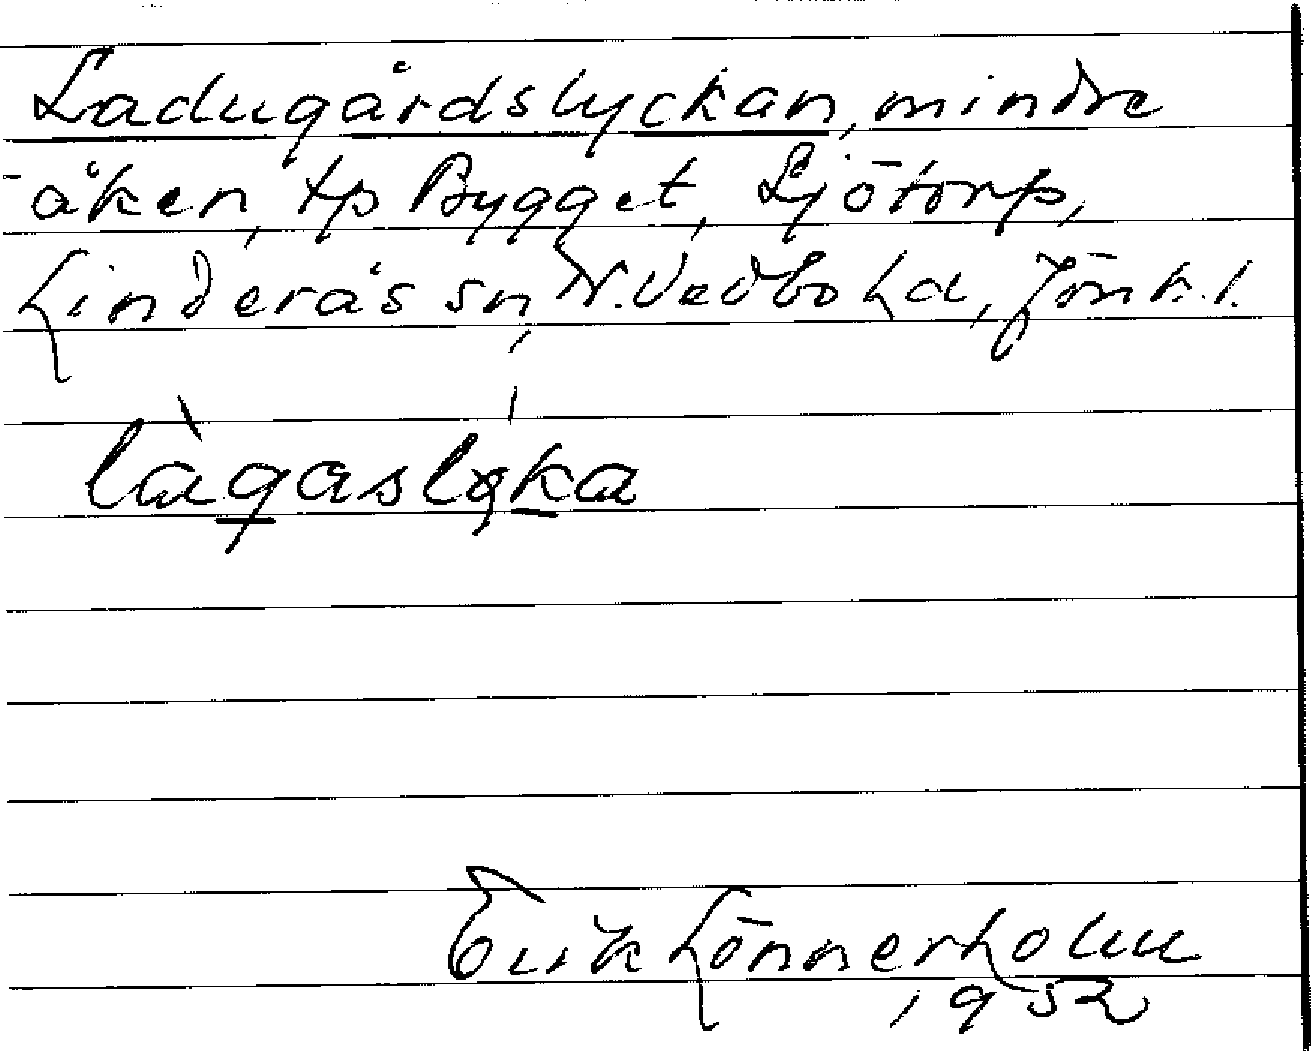 Ladugårdslyckan, mindre
åker, tp Bygget, Sjötorp,
Linderås sn, N. Vedbo hd, Jönk. l.
làgaslyka
Erik Lönnerholm
1952